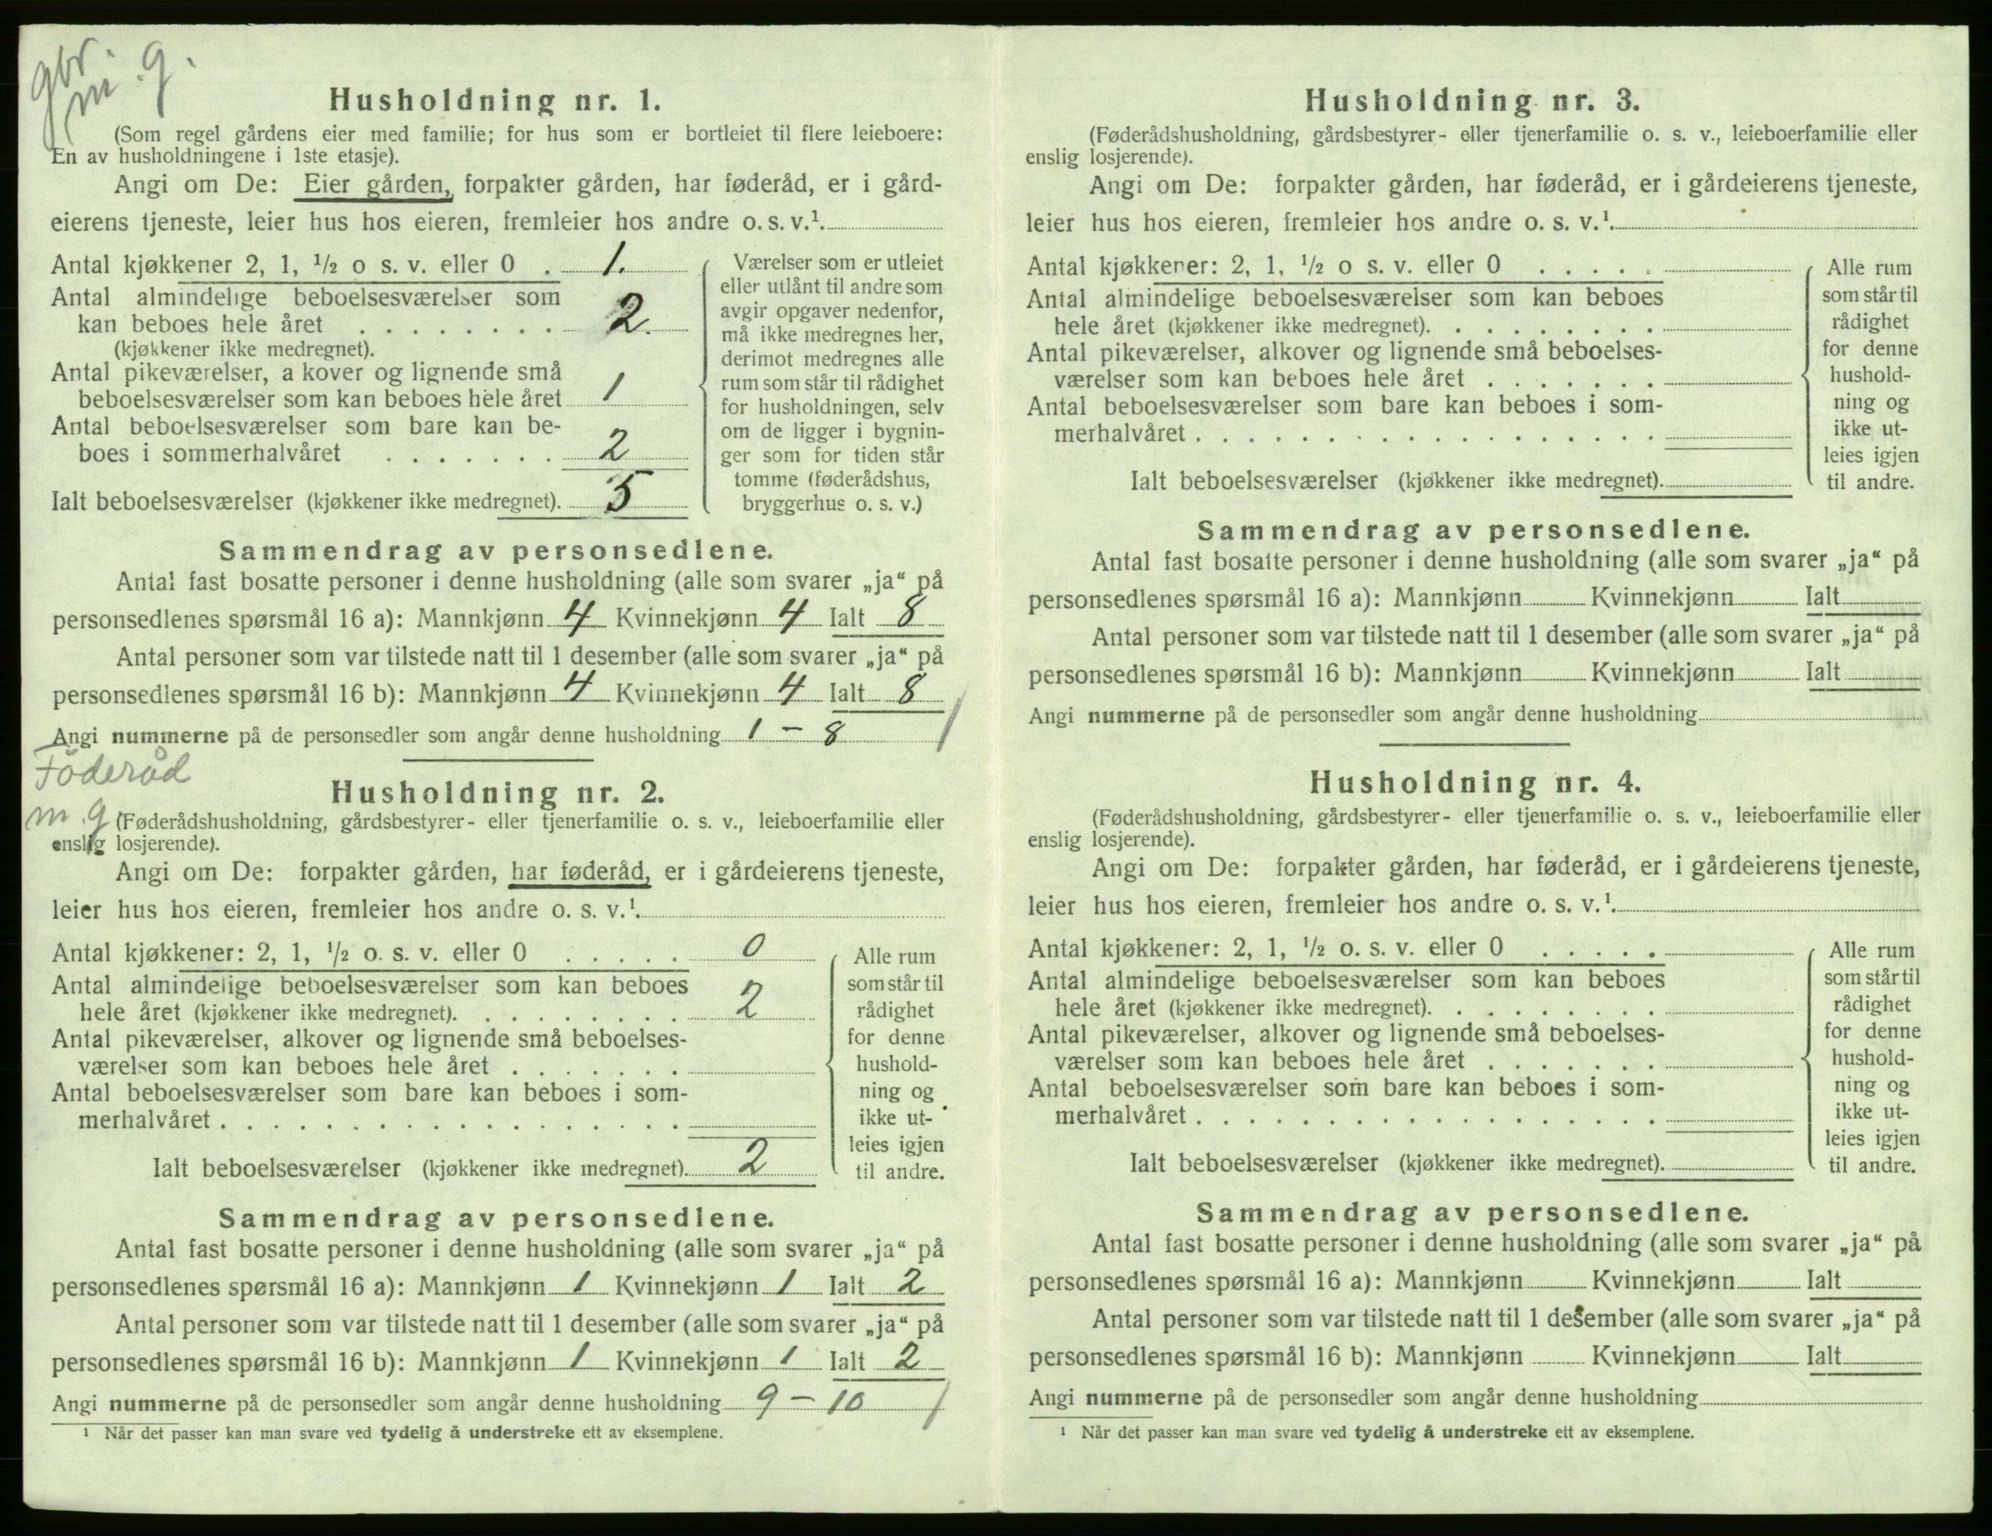 gbr.
m. g.
Husholdning nr. 1.
(Som regel gårdens eier med familie; for hus som er bortleiet til flere leieboere:
En av husholdningene i 1ste etasje).
Angi om De: Eier gården, forpakter gården, har føderåd, er i gård-
eierens tjeneste, leier hus hos eieren, fremleier hos andre o. s. v.¹.
Antal kjøkkener 2, 1, ½ o s. v. eller 0 . 1.
Antal almindelige beboelsesværelser som
kan beboes hele året . . . . . . . . 2.
(kjøkkener ikke medregnet).
Antal pikeværelser, a kover og lignende små
beboelsesværelser som kan beboes hele året 1
Antal beboelsesværelser som bare kan be-
boes i sommerhalvåret . . . . . . . 2
Ialt beboelsesværelser (kjøkkener ikke medregnet). 5
Værelser som er utleiet
eller utlånt til andre som
avgir opgaver nedenfor,
må ikke medregnes her,
derimot medregnes alle
rum som står til rådighet
for husholdningen, selv
om de ligger i bygnin-
ger som for tiden står
tomme (føderådshus,
bryggerhus o. s. v.)
Sammendrag av personsedlene.
Antal fast bosatte personer i denne husholdning (alle som svarer „ja“ på
personsedlenes spørsmål 16 a): Mannkjønn 4 Kvinnekjønn 4 Ialt 8
Antal personer som var tilstede natt til 1 desember (alle som svarer „ja“ på
personsedlenes spørsmål 16 b): Mannkjønn 4 Kvinnekjønn 4 Ialt 8
Angi nummerne på de personsedler som angår denne husholdning 1 – 8 /
Föderåd
m. g
Husholdning nr. 2.
(Føderådshusholdning, gårdsbestyrer- eller tjenerfamilie o. s. v., leieboerfamilie eller
enslig losjerende).
Angi om De: forpakter gården, har føderåd, er i gårdeierens tjeneste,
leier hus hos eieren, fremleier hos andre o. s. v.¹.
Antal kjøkkener: 2, 1, ½ o. s. v. eller 0 . . . . . 0
Antal almindelige beboelsesværelser som kan beboes
hele året (kjøkkener ikke medregnet). . . . . . . . . 2
Antal pikeværelser, alkover og lignende små beboelses-
værelser som kan beboes hele året . . . . . . .
Antal beboelsesværelser som bare kan beboes i som-
merhalvåret . . . . . . . . . . . . . . . . . .
Ialt beboelsesværelser (kjøkkener ikke medregnet). 2
Alle rum
som står til
rådighet
for denne
hushold-
ning og
ikke ut-
leies igjen
til andre.
Sammendrag av personsedlene.
Antal fast bosatte personer i denne husholdning (alle som svarer „ja“ på
personsedlenes spørsmål 16 a): Mannkjønn 1 Kvinnekjønn 1 Ialt 2
Antal personer som var tilstede natt til 1 desember (alle som svarer „ja“ på
personsedlenes spørsmål 16 b): Mannkjønn 1 Kvinnekjønn 1 Ialt 2
Angi nummerne på de personsedler som angår denne husholdning 9 – 10 /
¹ Når det passer kan man svare ved tydelig å understreke ett av eksemplene.
Husholdning nr. 3.
(Føderådshusholdning, gårdsbestyrer- eller tjenerfamilie o. s. v., leieboerfamilie eller
enslig losjerende).
Angi om De: forpakter gården, har føderåd, er i gårdeierens tjeneste,
leier hus hos eieren, fremleier hos andre o. s. v.¹.
Antal kjøkkener: 2, 1, ½ o s. v. eller 0 . . . . .
Antal almindelige beboelsesværelser som kan beboes
hele året (kjøkkener ikke medregnet). . . . . . . . .
Antal pikeværelser, alkover og lignende små beboelses-
værelser som kan beboes hele året . . . . . . .
Antal beboelsesværelser som bare kan beboes i som-
merhalvåret . . . . . . . . . . . . . . . . . .
Ialt beboelsesværelser (kjøkkener ikke medregnet).
Alle rum
som står til
rådighet
for denne
hushold-
ning og
ikke ut-
leies igjen
til andre.
Sammendrag av personsedlene.
Antal fast bosatte personer i denne husholdning (alle som svarer „ja“ på
personsedlenes spørsmål 16 a): Mannkjønn Kvinnekjønn Ialt
Antal personer som var tilstede natt til 1 desember (alle som svarer „ja“ på
personsedlenes spørsmål 16 b): Mannkjønn Kvinnekjønn Ialt
Angi nummerne på de personsedler som angår denne husholdning
Husholdning nr. 4.
(Føderådshusholdning, gårdsbestyrer- eller tjenerfamilie o. s. v., leieboerfamilie eller
enslig losjerende).
Angi om De: forpakter gården, har føderåd, er i gårdeierens tjeneste,
leier hus hos eieren, fremleier hos andre o. s. v.¹.
Antal kjøkkener: 2, 1, ½ o. s. v. eller 0 . . . . .
Antal almindelige beboelsesværelser som kan beboes
hele året (kjøkkener ikke medregnet). . . . . . . . .
Antal pikeværelser, alkover og lignende små beboelses-
værelser som kan beboes hele året . . . . . . .
Antal beboelsesværelser som bare kan beboes i som-
merhalvåret . . . . . . . . . . . . . . . . . .
Ialt beboelsesværelser (kjøkkener ikke medregnet).
Alle rum
som står til
rådighet
for denne
hushold-
ning og
ikke ut-
leies igjen
til andre.
Sammendrag av personsedlene.
Antal fast bosatte personer i denne husholdning (alle som svarer „ja“ på
personsedlenes spørsmål 16 a): Mannkjønn Kvinnekjønn Ialt
Antal personer som var tilstede natt til 1 desember (alle som svarer „ja“ på
personsedlenes spørsmål 16 b): Mannkjønn Kvinnekjønn Ialt
Angi nummerne på de personsedler som angår denne husholdning
¹ Når det passer kan man svare ved tydelig å understreke ett av eksemplene.